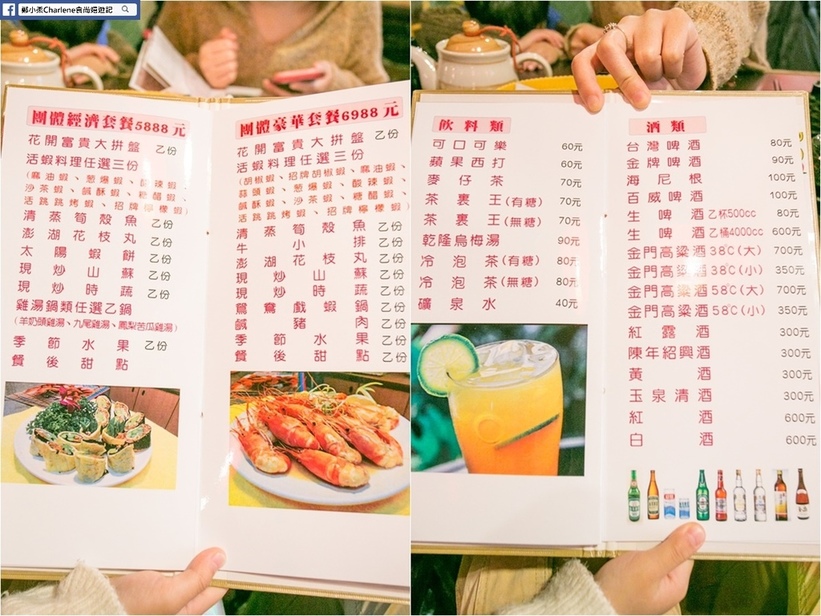 鄭小柔Charlene食尚短遊記
團體經濟套餐5888元
花開富貴大拼盤 乙份
活蝦料理任選三份
清蒸筍殼魚 乙份
澎湖花枝丸 乙份
太陽蝦餅 乙份
現炒山蘇 乙份
現炒時蔬 乙份
雞湯鍋類任選乙鍋
(羊奶頭雞湯、九尾雞湯、鳳梨苦瓜雞湯)
季節水果 乙份
餐後甜點
團體豪華套餐6988元
花開富貴大拼盤 乙份
活蝦料理任選三份
(胡椒蝦、招牌胡椒蝦、麻油蝦、
蒜頭蝦、蔥爆蝦、酸辣蝦、
鹹酥蝦、沙茶蝦、糖醋蝦、
活跳跳烤蝦、招牌檸檬蝦)
清蒸筍殼魚 乙份
牛小排 乙份
澎湖花枝丸 乙份
現炒山蘇 乙份
現炒時蔬 乙份
鴛鴦戲蝦鍋 乙份
鹹豬肉 乙份
季節水果 乙份
餐後甜點 乙份
飲料類
可口可樂 60元
蘋果西打 60元
麥仔茶 70元
茶裏王(有糖) 70元
茶裏王(無糖) 70元
乾隆烏梅湯 90元
冷泡茶(有糖) 80元
冷泡茶(無糖) 80元
礦泉水 40元
酒類
台灣啤酒 80元
金牌啤酒 90元
海尼根 100元
百威啤酒 100元
生啤酒 乙杯500cc 80元
生啤酒 乙桶4000cc 600元
金門高粱酒38℃(大) 700元
金門高粱酒38℃(小) 350元
金門高粱酒58℃(大) 700元
金門高粱酒58℃(小) 350元
紅露酒 300元
陳年紹興酒 300元
黃酒 300元
玉泉清酒 300元
紅酒 600元
白酒 600元